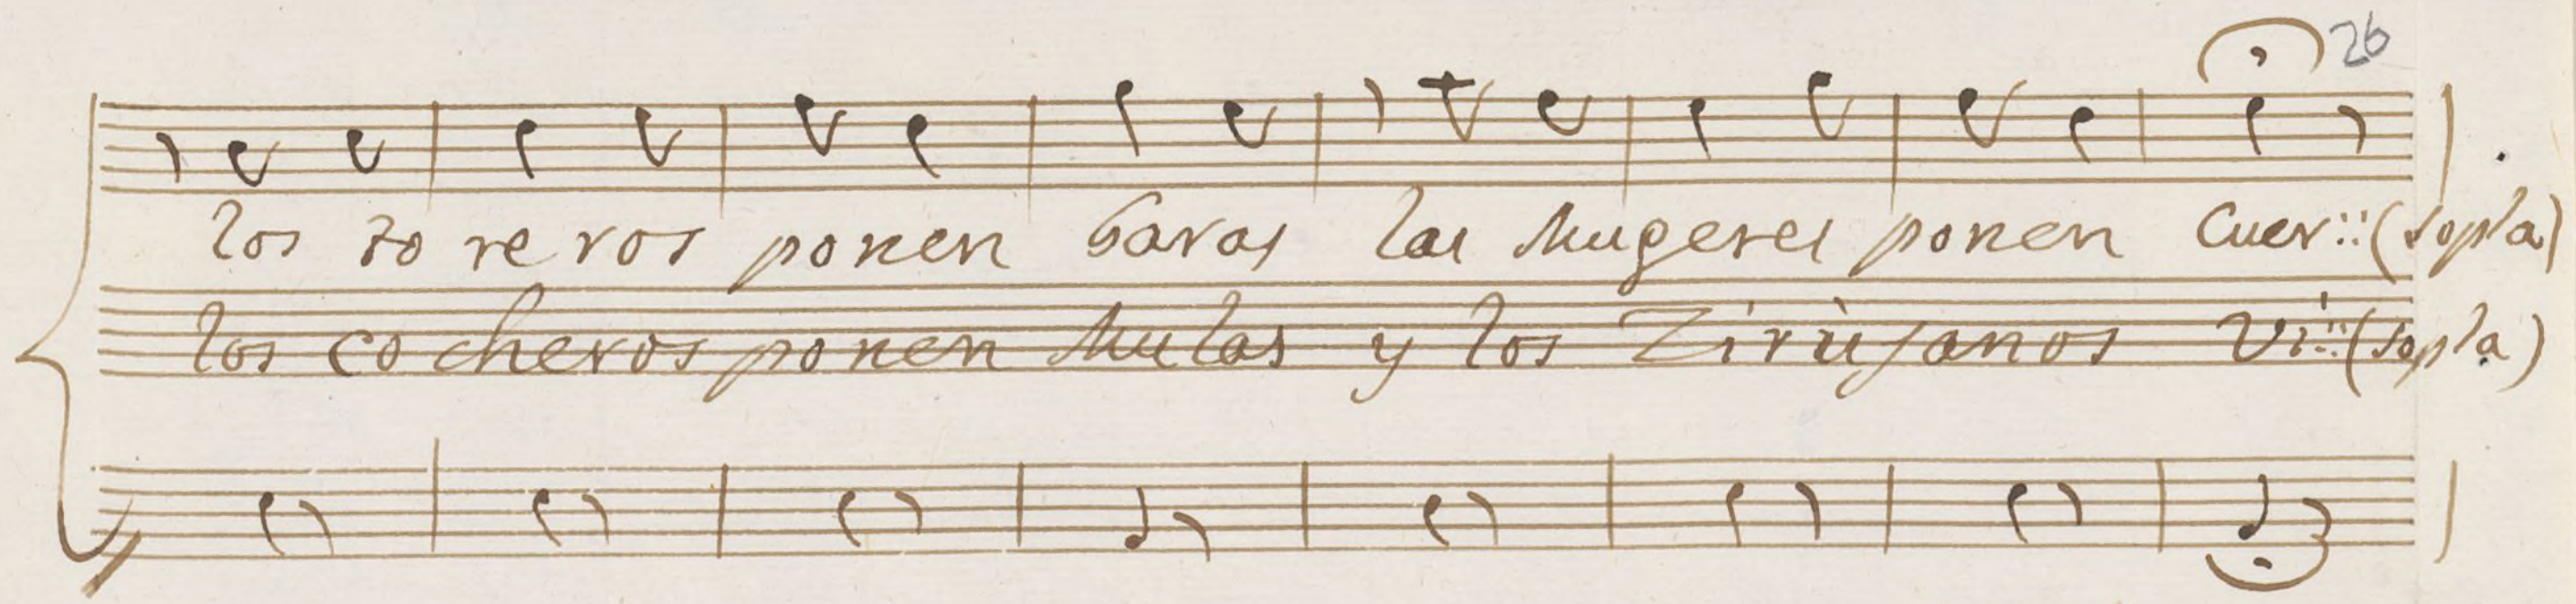 26
los to re ros ponen baras las Mugeres ponen Cuer::(sopla)
los co cheros ponen Mulas y los Zirujanos Vi::(sopla)